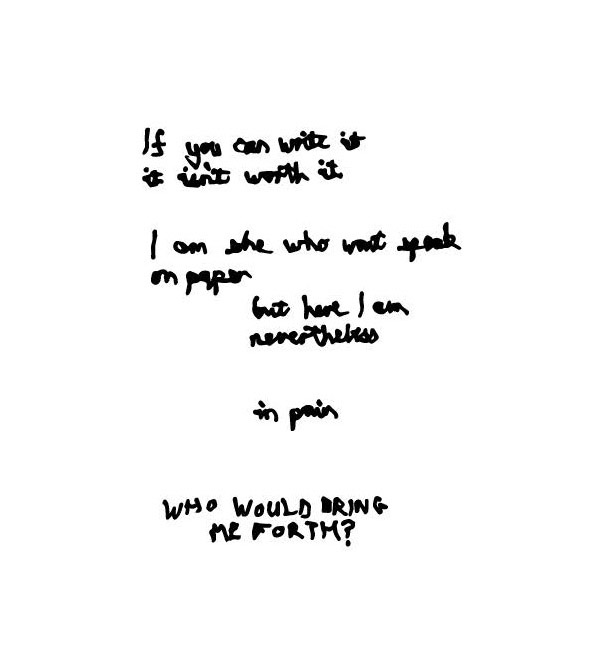 If you can write it
it isn't worth it
I am she who won't speak
on paper
but here I am
nevertheless
in pain
WHO WOULD BRING
ME FORTH?